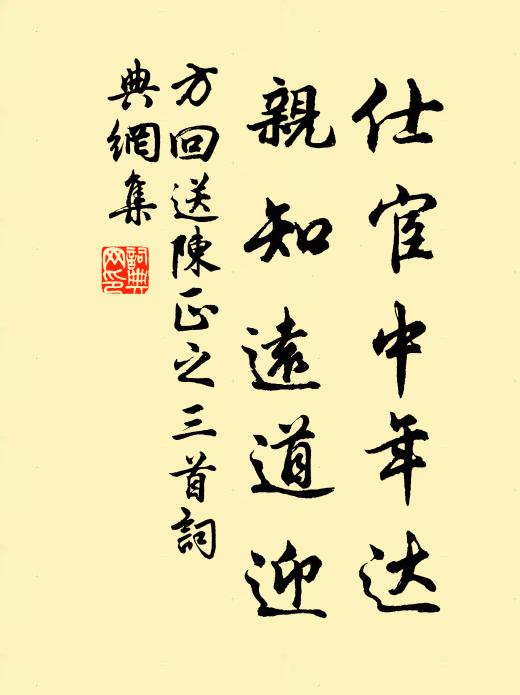 仕宦中年达
親知遠道迎
方回送陳正之三首詞
典網集
詞典網印